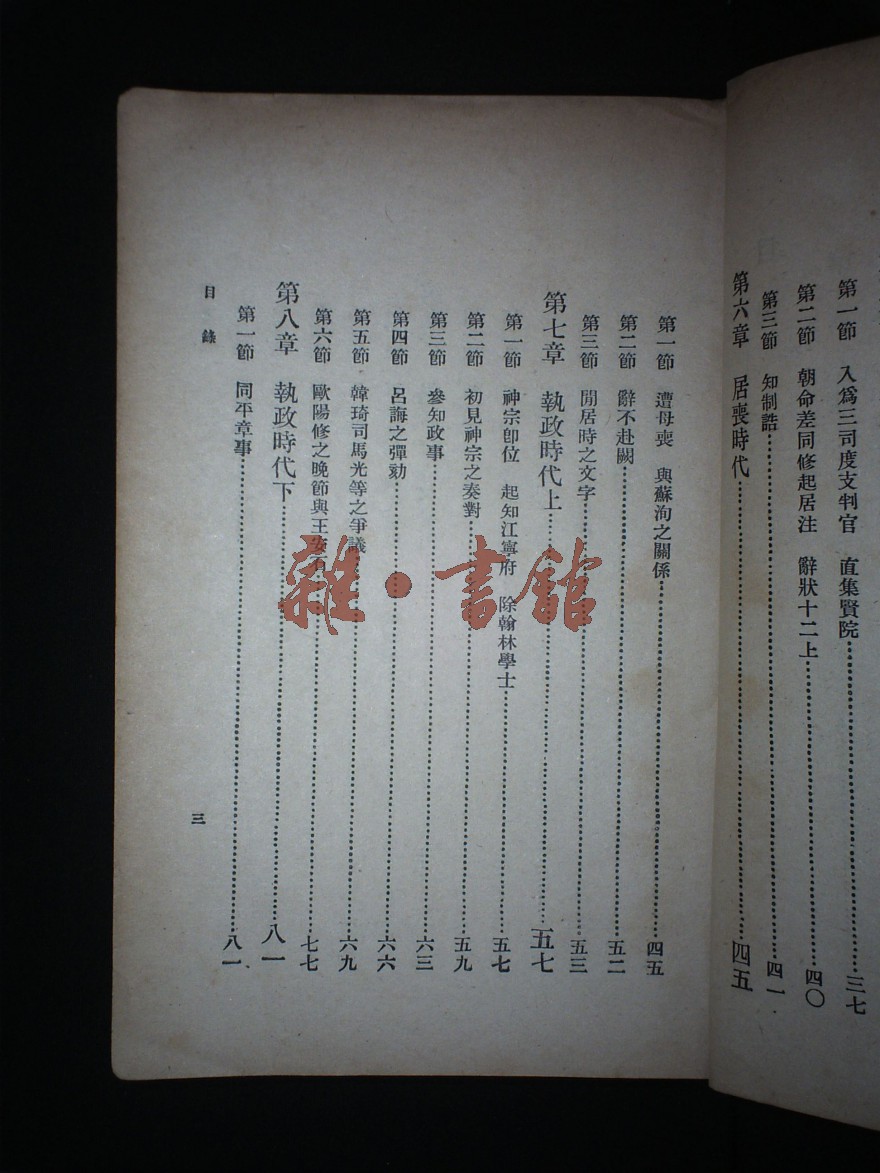 第一節　入爲三司度支判官　直集賢院……三七
第二節　朝命差同修起居注　辭狀十二上……四〇
第三節　知制誥……四一
第六章　居喪時代……四五
第一節　遭母喪　與蘇洵之關係……四五
第二節　辭不赴闕……五二
第三節　閒居時之文字……五三
第七章　執政時代上……五七
第一節　神宗卽位　起知江寧府　除翰林學士……五七
第二節　初見神宗之奏對……五九
第三節　參知政事……六三
第四節　呂誨之彈劾……六六
第五節　韓琦司馬光等之爭議……六九
第六節　歐陽修之晚節與王安石……七七
第八章　執政時代下……八一
第一節　同平章事……八一
目錄
三
雜·書館